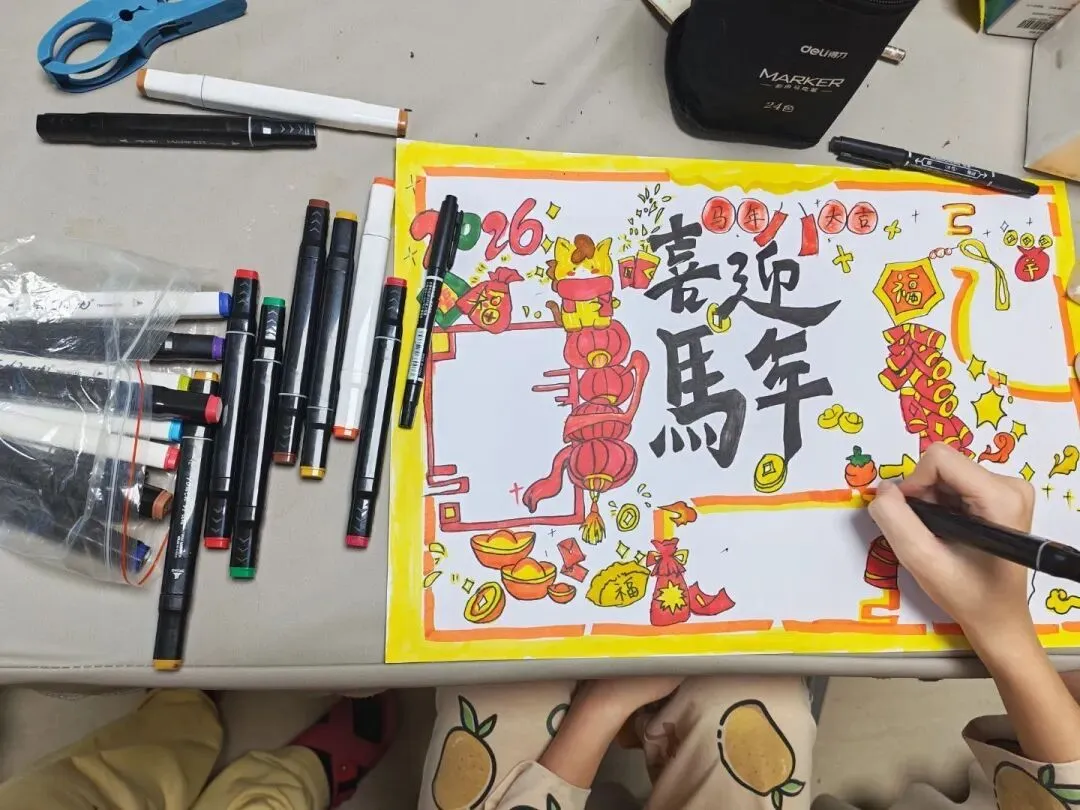 deli得力
MARKER
24色
2026
马年大吉
喜迎
馬年
福
福